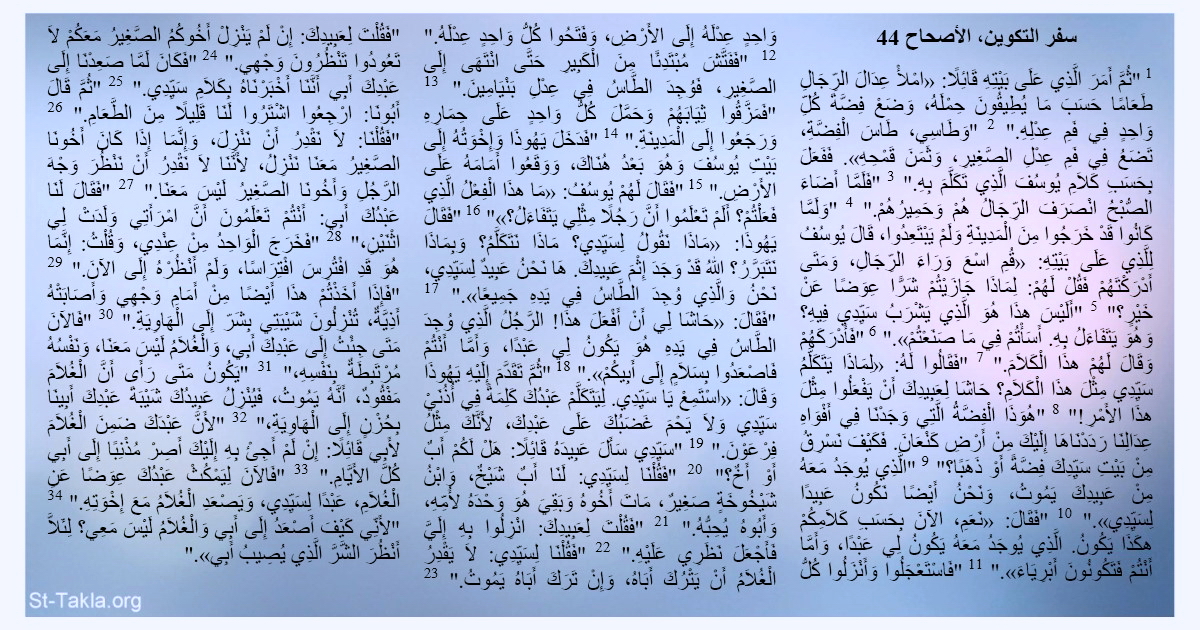 سفر التكوين، الأصحاح 44
1 "ثُمَّ أَمَرَ الَّذِي عَلَى بَيْتِهِ قَائِلًا: «امْلأْ عِدَالَ الرِّجَالِ
طَعَامًا حَسَبَ مَا يُطِيقُونَ حِمْلَهُ، وَضَعْ فِضَّةَ كُلِّ
وَاحِدٍ فِي فَمِ عِدْلِهِ." 2 "وَطَاسِي، طَاسَ الْفِضَّةِ،
تَضَعُ فِي فَمِ عِدْلِ الصَّغِيرِ، وَثَمَنَ قَمْحِهِ». فَفَعَلَ
بِحَسَبِ كَلاَمِ يُوسُفَ الَّذِي تَكَلَّمَ بِهِ." 3 "فَلَمَّا أَضَاءَ
الصُّبْحُ انْصَرَفَ الرِّجَالُ هُمْ وَحَمِيرُهُمْ." 4 "وَلَمَّا
كَانُوا قَدْ خَرَجُوا مِنَ الْمَدِينَةِ وَلَمْ يَبْتَعِدُوا، قَالَ يُوسُفُ
لِلَّذِي عَلَى بَيْتِهِ: «قُمِ اسْعَ وَرَاءَ الرِّجَالِ، وَمَتَى
أَدْرَكْتَهُمْ فَقُلْ لَهُمْ: لِمَاذَا جَازَيْتُمْ شَرًّا عِوَضًا عَنْ
خَيْرٍ؟" 5 "أَلَيْسَ هذَا هُوَ الَّذِي يَشْرَبُ سَيِّدِي فِيهِ؟
وَهُوَ يَتَفَاءَلُ بِهِ. أَسَأْتُمْ فِي مَا صَنَعْتُمْ»." 6 "فَأَدْرَكَهُمْ
وَقَالَ لَهُمْ هذَا الْكَلاَمَ." 7 "فَقَالُوا لَهُ: «لِمَاذَا يَتَكَلَّمُ
سَيِّدِي مِثْلَ هذَا الْكَلاَمِ؟ حَاشَا لِعَبِيدِكَ أَنْ يَفْعَلُوا مِثْلَ
هذَا الأَمْرِ!" 8 "هُوَذَا الْفِضَّةُ الَّتِي وَجَدْنَا فِي أَفْوَاهِ
عِدَالِنَا رَدَدْنَاهَا إِلَيْكَ مِنْ أَرْضِ كَنْعَانَ. فَكَيْفَ نَسْرِقُ
مِنْ بَيْتِ سَيِّدِكَ فِضَّةً أَوْ ذَهَبًا؟" 9 "الَّذِي يُوجَدُ مَعَهُ
مِنْ عَبِيدِكَ يَمُوتُ، وَنَحْنُ أَيْضًا نَكُونُ عَبِيدًا
لِسَيِّدِي»." 10 "فَقَالَ: «نَعَمِ، الآنَ بِحَسَبِ كَلاَمِكُمْ
هكَذَا يَكُونُ. الَّذِي يُوجَدُ مَعَهُ يَكُونُ لِي عَبْدًا، وَأَمَّا
أَنْتُمْ فَتَكُونُونَ أَبْرِيَاءَ»." 11 "فَاسْتَعْجَلُوا وَأَنْزَلُوا كُلُّ
وَاحِدٍ عِدْلَهُ إِلَى الأَرْضِ، وَفَتَحُوا كُلُّ وَاحِدٍ عِدْلَهُ."
12 "فَفَتَّشَ مُبْتَدِئًا مِنَ الْكَبِيرِ حَتَّى انْتَهَى إِلَى
الصَّغِيرِ، فَوُجِدَ الطَّاسُ فِي عِدْلِ بَنْيَامِينَ." 13
"فَمَزَّقُوا ثِيَابَهُمْ وَحَمَّلَ كُلُّ وَاحِدٍ عَلَى حِمَارِهِ
وَرَجَعُوا إِلَى الْمَدِينَةِ." 14 "فَدَخَلَ يَهُوذَا وَإِخْوَتُهُ إِلَى
بَيْتِ يُوسُفَ وَهُوَ بَعْدُ هُنَاكَ، وَوَقَعُوا أَمَامَهُ عَلَى
الأَرْضِ." 15 "فَقَالَ لَهُمْ يُوسُفُ: «مَا هذَا الْفِعْلُ الَّذِي
فَعَلْتُمْ؟ أَلَمْ تَعْلَمُوا أَنَّ رَجُلًا مِثْلِي يَتَفَاءَلُ؟»" 16 "فَقَالَ
يَهُوذَا: «مَاذَا نَقُولُ لِسَيِّدِي؟ مَاذَا نَتَكَلَّمُ؟ وَبِمَاذَا
نَتَبَرَّرُ؟ اللهُ قَدْ وَجَدَ إِثْمَ عَبِيدِكَ. هَا نَحْنُ عَبِيدٌ لِسَيِّدِي،
نَحْنُ وَالَّذِي وُجِدَ الطَّاسُ فِي يَدِهِ جَمِيعًا»." 17
"فَقَالَ: «حَاشَا لِي أَنْ أَفْعَلَ هذَا! الرَّجُلُ الَّذِي وُجِدَ
الطَّاسُ فِي يَدِهِ هُوَ يَكُونُ لِي عَبْدًا، وَأَمَّا أَنْتُمْ
فَاصْعَدُوا بِسَلاَمٍ إِلَى أَبِيكُمْ»." 18 "ثُمَّ تَقَدَّمَ إِلَيْهِ يَهُوذَا
وَقَالَ: «اسْتَمِعْ يَا سَيِّدِي. لِيَتَكَلَّمْ عَبْدُكَ كَلِمَةً فِي أُذُنَيْ
سَيِّدِي وَلاَ يَحْمَ غَضَبُكَ عَلَى عَبْدِكَ، لأَنَّكَ مِثْلُ
فِرْعَوْنَ." 19 "سَيِّدِي سَأَلَ عَبِيدَهُ قَائِلًا: هَلْ لَكُمْ أَبٌ
أَوْ أَخٌ؟" 20 "فَقُلْنَا لِسَيِّدِي: لَنَا أَبٌ شَيْخٌ، وَابْنُ
شَيْخُوخَةٍ صَغِيرٌ، مَاتَ أَخُوهُ وَبَقِيَ هُوَ وَحْدَهُ لأُمِّهِ،
وَأَبُوهُ يُحِبُّهُ." 21 "فَقُلْتَ لِعَبِيدِكَ: انْزِلُوا بِهِ إِلَيَّ
فَأَجْعَلَ نَظَرِي عَلَيْهِ." 22 "فَقُلْنَا لِسَيِّدِي: لاَ يَقْدِرُ
الْغُلاَمُ أَنْ يَتْرُكَ أَبَاهُ، وَإِنْ تَرَكَ أَبَاهُ يَمُوتُ." 23
"فَقُلْتَ لِعَبِيدِكَ: إِنْ لَمْ يَنْزِلْ أَخُوكُمُ الصَّغِيرُ مَعَكُمْ لاَ
تَعُودُوا تَنْظُرُونَ وَجْهِي." 24 "فَكَانَ لَمَّا صَعِدْنَا إِلَى
عَبْدِكَ أَبِي أَنَّنَا أَخْبَرْنَاهُ بِكَلاَمِ سَيِّدِي." 25 "ثُمَّ قَالَ
أَبُونَا: ارْجِعُوا اشْتَرُوا لَنَا قَلِيلًا مِنَ الطَّعَامِ." 26
"فَقُلْنَا: لاَ نَقْدِرُ أَنْ نَنْزِلَ، وَإِنَّمَا إِذَا كَانَ أَخُونَا
الصَّغِيرُ مَعَنَا نَنْزِلُ، لأَنَّنَا لاَ نَقْدِرُ أَنْ نَنْظُرَ وَجْهَ
الرَّجُلِ وَأَخُونَا الصَّغِيرُ لَيْسَ مَعَنَا." 27 "فَقَالَ لَنَا
عَبْدُكَ أَبِي: أَنْتُمْ تَعْلَمُونَ أَنَّ امْرَأَتِي وَلَدَتْ لِي
اثْنَيْنِ،" 28 "فَخَرَجَ الْوَاحِدُ مِنْ عِنْدِي، وَقُلْتُ: إِنَّمَا
هُوَ قَدِ افْتُرِسَ افْتِرَاسًا، وَلَمْ أَنْظُرْهُ إِلَى الآنَ." 29
"فَإِذَا أَخَذْتُمْ هذَا أَيْضًا مِنْ أَمَامِ وَجْهِي وَأَصَابَتْهُ
أَذِيَّةٌ، تُنْزِلُونَ شَيْبَتِي بِشَرّ إِلَى الْهَاوِيَةِ." 30 "فَالآنَ
مَتَى جِئْتُ إِلَى عَبْدِكَ أَبِي، وَالْغُلاَمُ لَيْسَ مَعَنَا، وَنَفْسُهُ
مُرْتَبِطَةٌ بِنَفْسِهِ،" 31 "يَكُونُ مَتَى رَأَى أَنَّ الْغُلاَمَ
مَفْقُودٌ، أَنَّهُ يَمُوتُ، فَيُنْزِلُ عَبِيدُكَ شَيْبَةَ عَبْدِكَ أَبِينَا
بِحُزْنٍ إِلَى الْهَاوِيَةِ،" 32 "لأَنَّ عَبْدَكَ ضَمِنَ الْغُلاَمَ
لأَبِي قَائِلًا: إِنْ لَمْ أَجِئْ بِهِ إِلَيْكَ أَصِرْ مُذْنِبًا إِلَى أَبِي
كُلَّ الأَيَّامِ." 33 "فَالآنَ لِيَمْكُثْ عَبْدُكَ عِوَضًا عَنِ
الْغُلاَمِ، عَبْدًا لِسَيِّدِي، وَيَصْعَدِ الْغُلاَمُ مَعَ إِخْوَتِهِ." 34
"لأَنِّي كَيْفَ أَصْعَدُ إِلَى أَبِي وَالْغُلاَمُ لَيْسَ مَعِي؟ لِئَلاَّ
أَنْظُرَ الشَّرَّ الَّذِي يُصِيبُ أَبِي»."
St-Takla.org